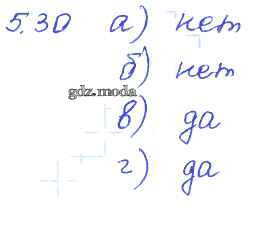 5.30 а) нет
б) нет
gdz.moda
в) да
г) да